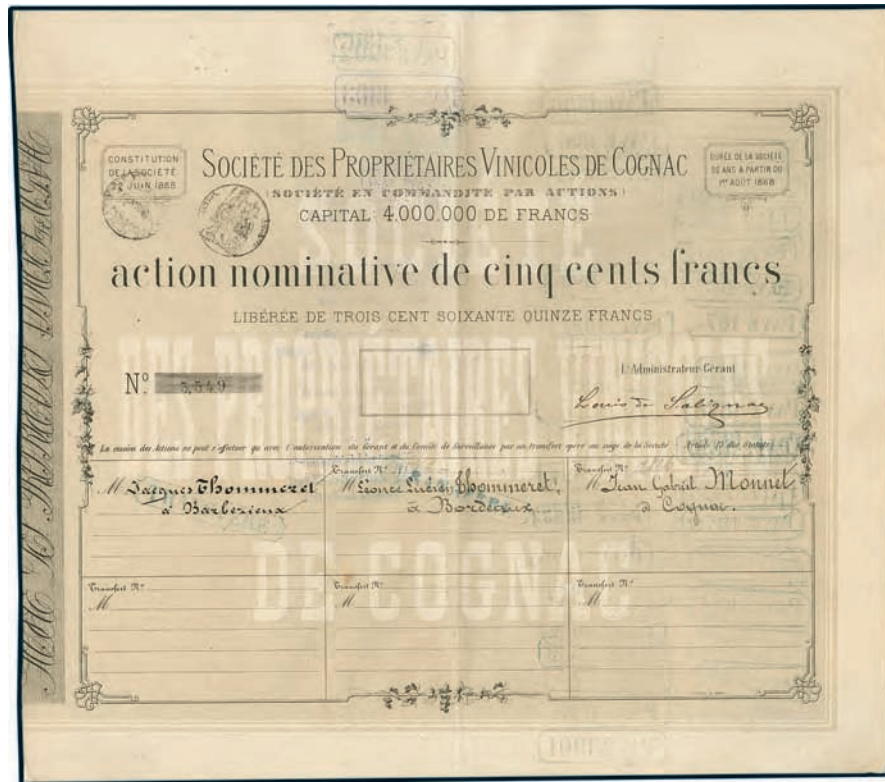 CONSTITUTION
DE LA SOCIÉTÉ
22 JUIN 1868
SOCIÉTÉ DES PROPRIÉTAIRES VINICOLES DE COGNAC
(SOCIÉTÉ EN COMMANDITE PAR ACTIONS)
CAPITAL: 4.000.000 DE FRANCS
DURÉE DE LA SOCIÉTÉ
50 ANS A PARTIR DU
1er AOÛT 1868
action nominative de cinq cents francs
LIBÉRÉE DE TROIS CENT SOIXANTE QUINZE FRANCS
No. 5,549
L'Administrateur-Gérant
Louis de Salignac
La cession des Actions ne peut s'effectuer qu'avec l'autorisation du Gérant et du Comité de Surveillance par un transfert opéré au siège de la Société. Article 15 des Statuts
M Jacques Thommeret
à Barbezieux
Transfert No.
M Léonce Thommeret,
à Bordeaux
Transfert No.
M Jean Gabriel Monnet
à Cognac.
Transfert No.
M
Transfert No.
M
Transfert No.
M
SOCIÉTÉ
DES PROPRIÉTAIRES VINICOLES
DE COGNAC